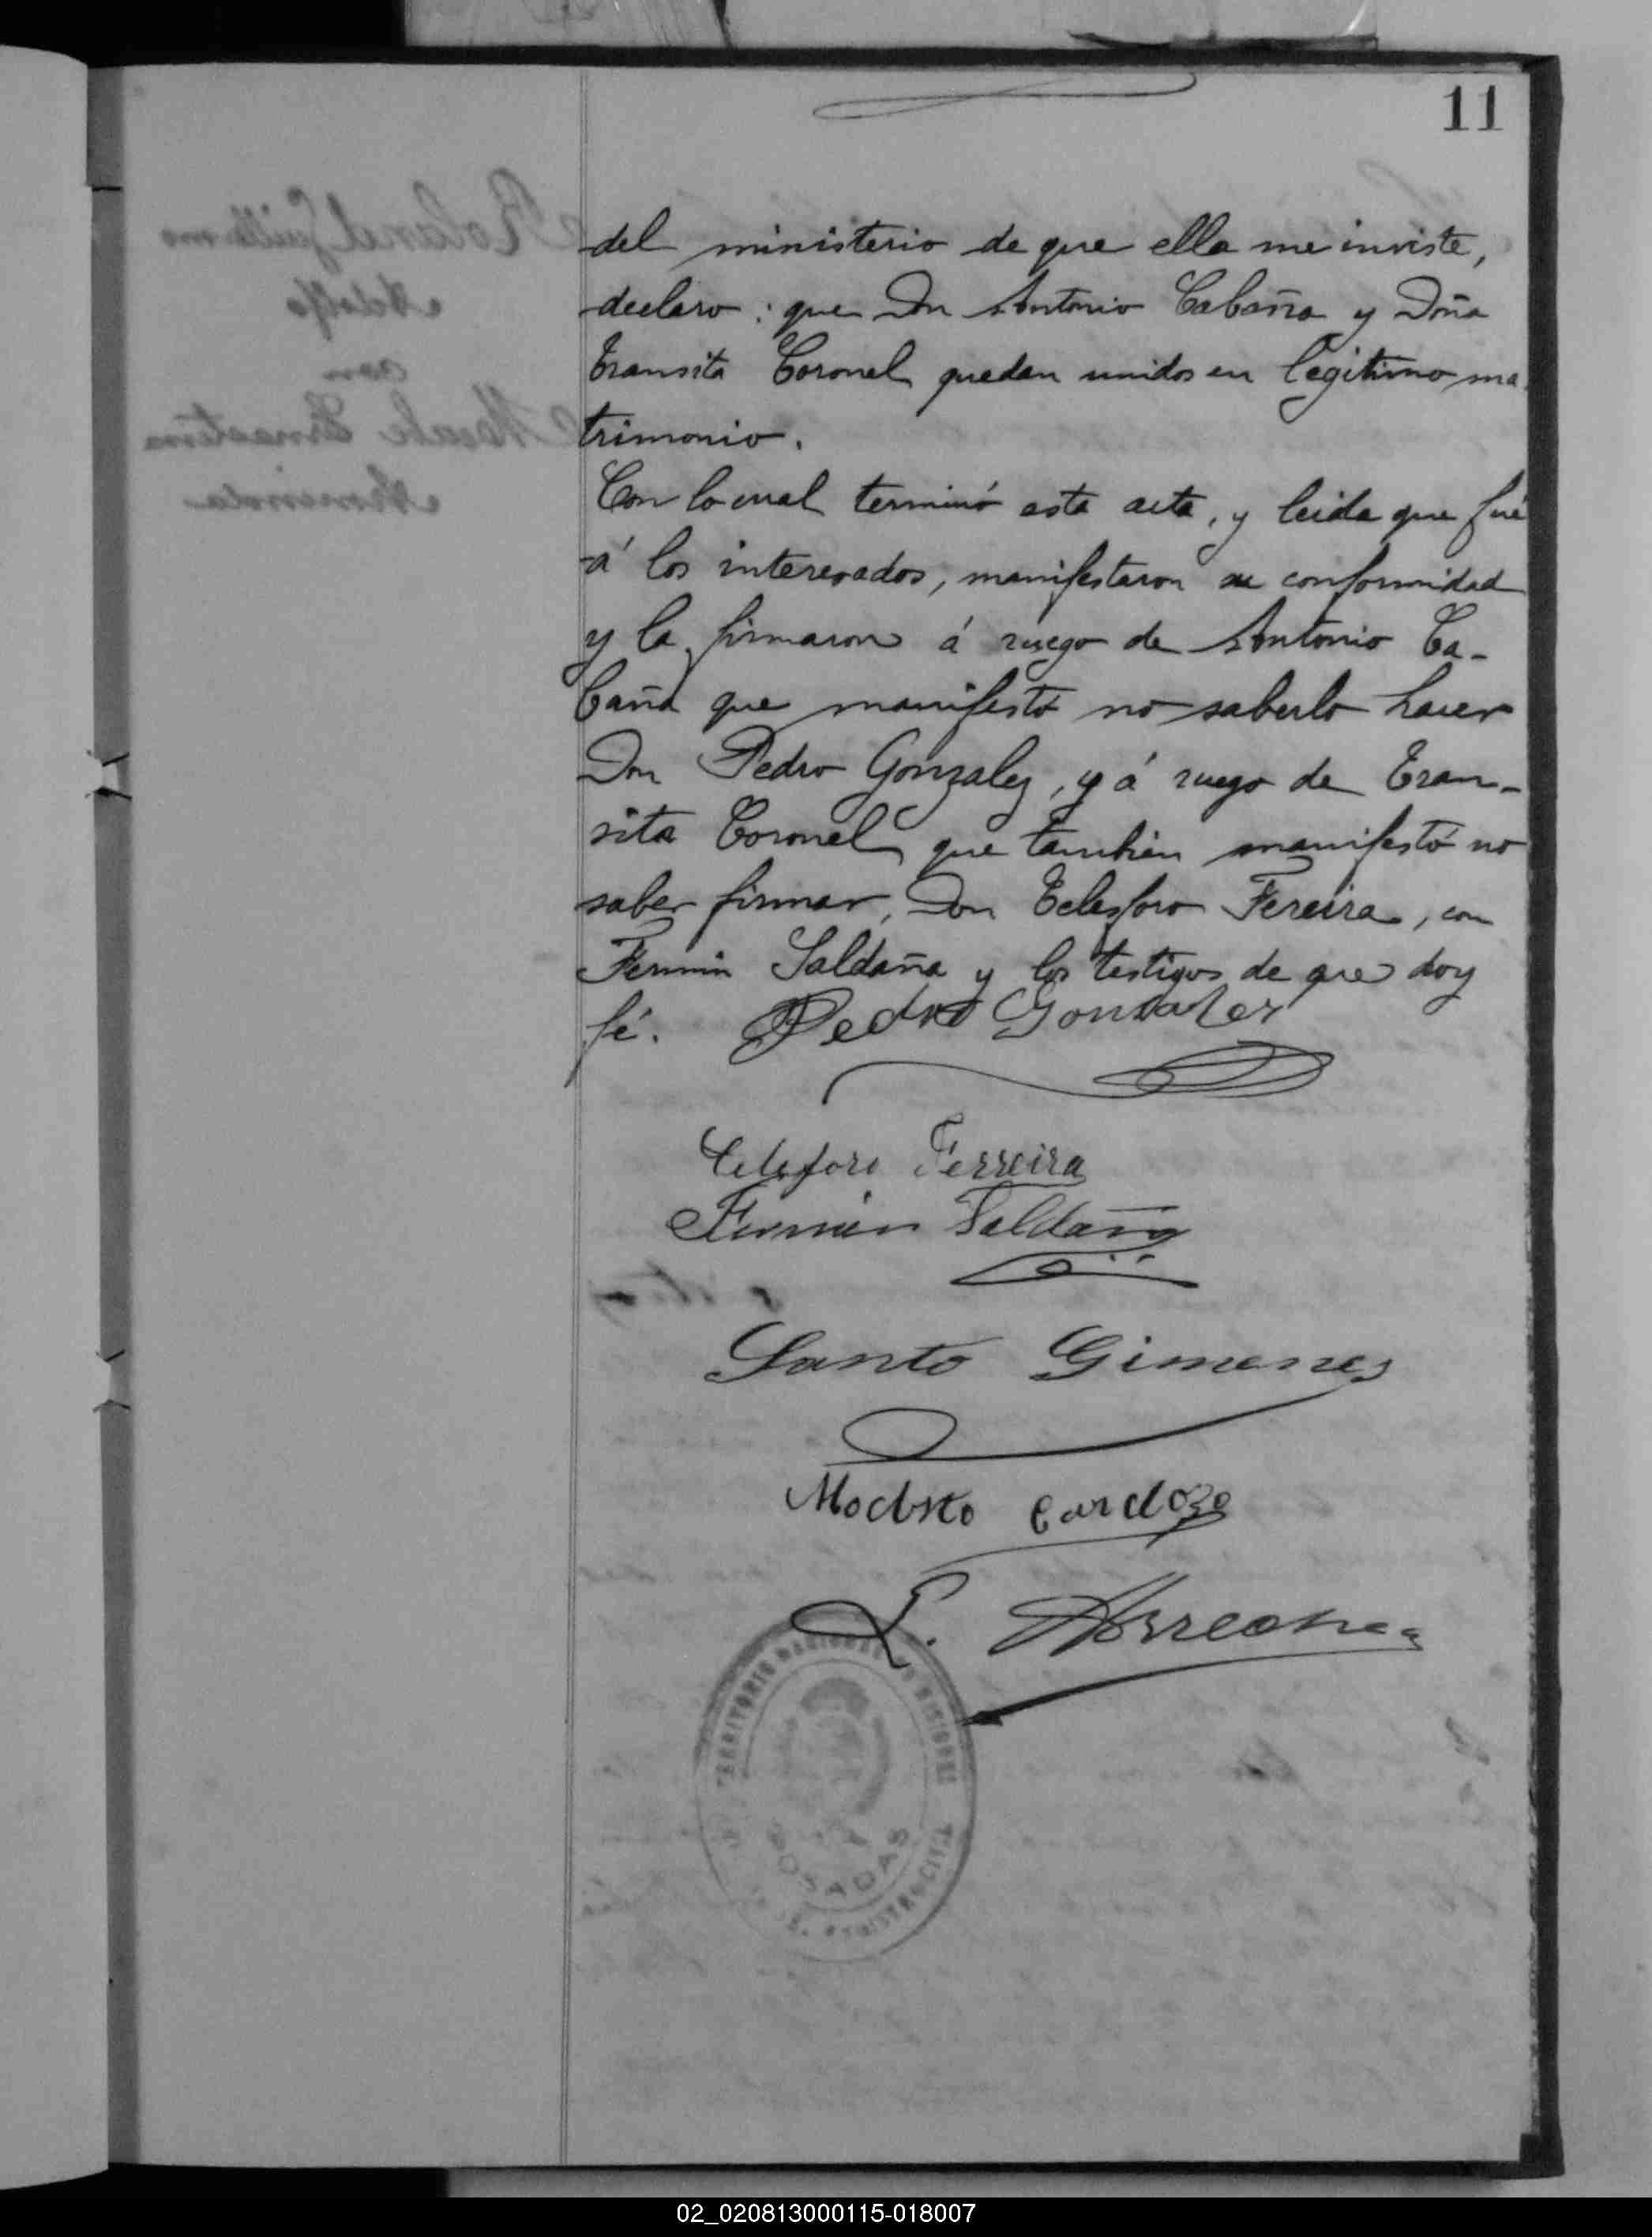 11
del ministerio de que ella me inviste,
declaro: que Don Antonio Cabaña y Doña
Transita Coronel quedan unidos en legitimo ma
trimonio.
Con lo cual terminó esta acta, y leida que fué
á los interesados, manifestaron su conformidad
y la firmaron á ruego de Antonio Ca-
baña que manifestó no saberlo hacer
Don Pedro Gonzalez, y á ruego de Tran-
sita Coronel que tambien manifestó no
saber firmar, Don Telesforo Fereira, con
Fermin Saldaña y los testigos de que doy
fé. Pedro Gonzalez
Telesforo Ferreira
Fermin Saldaña
Santo Gimenes
Modesto Cardozo
L.
TERRITORIO NACIONAL DE MISIONES
POSADAS
REGISTRO CIVIL
02_020813000115-018007